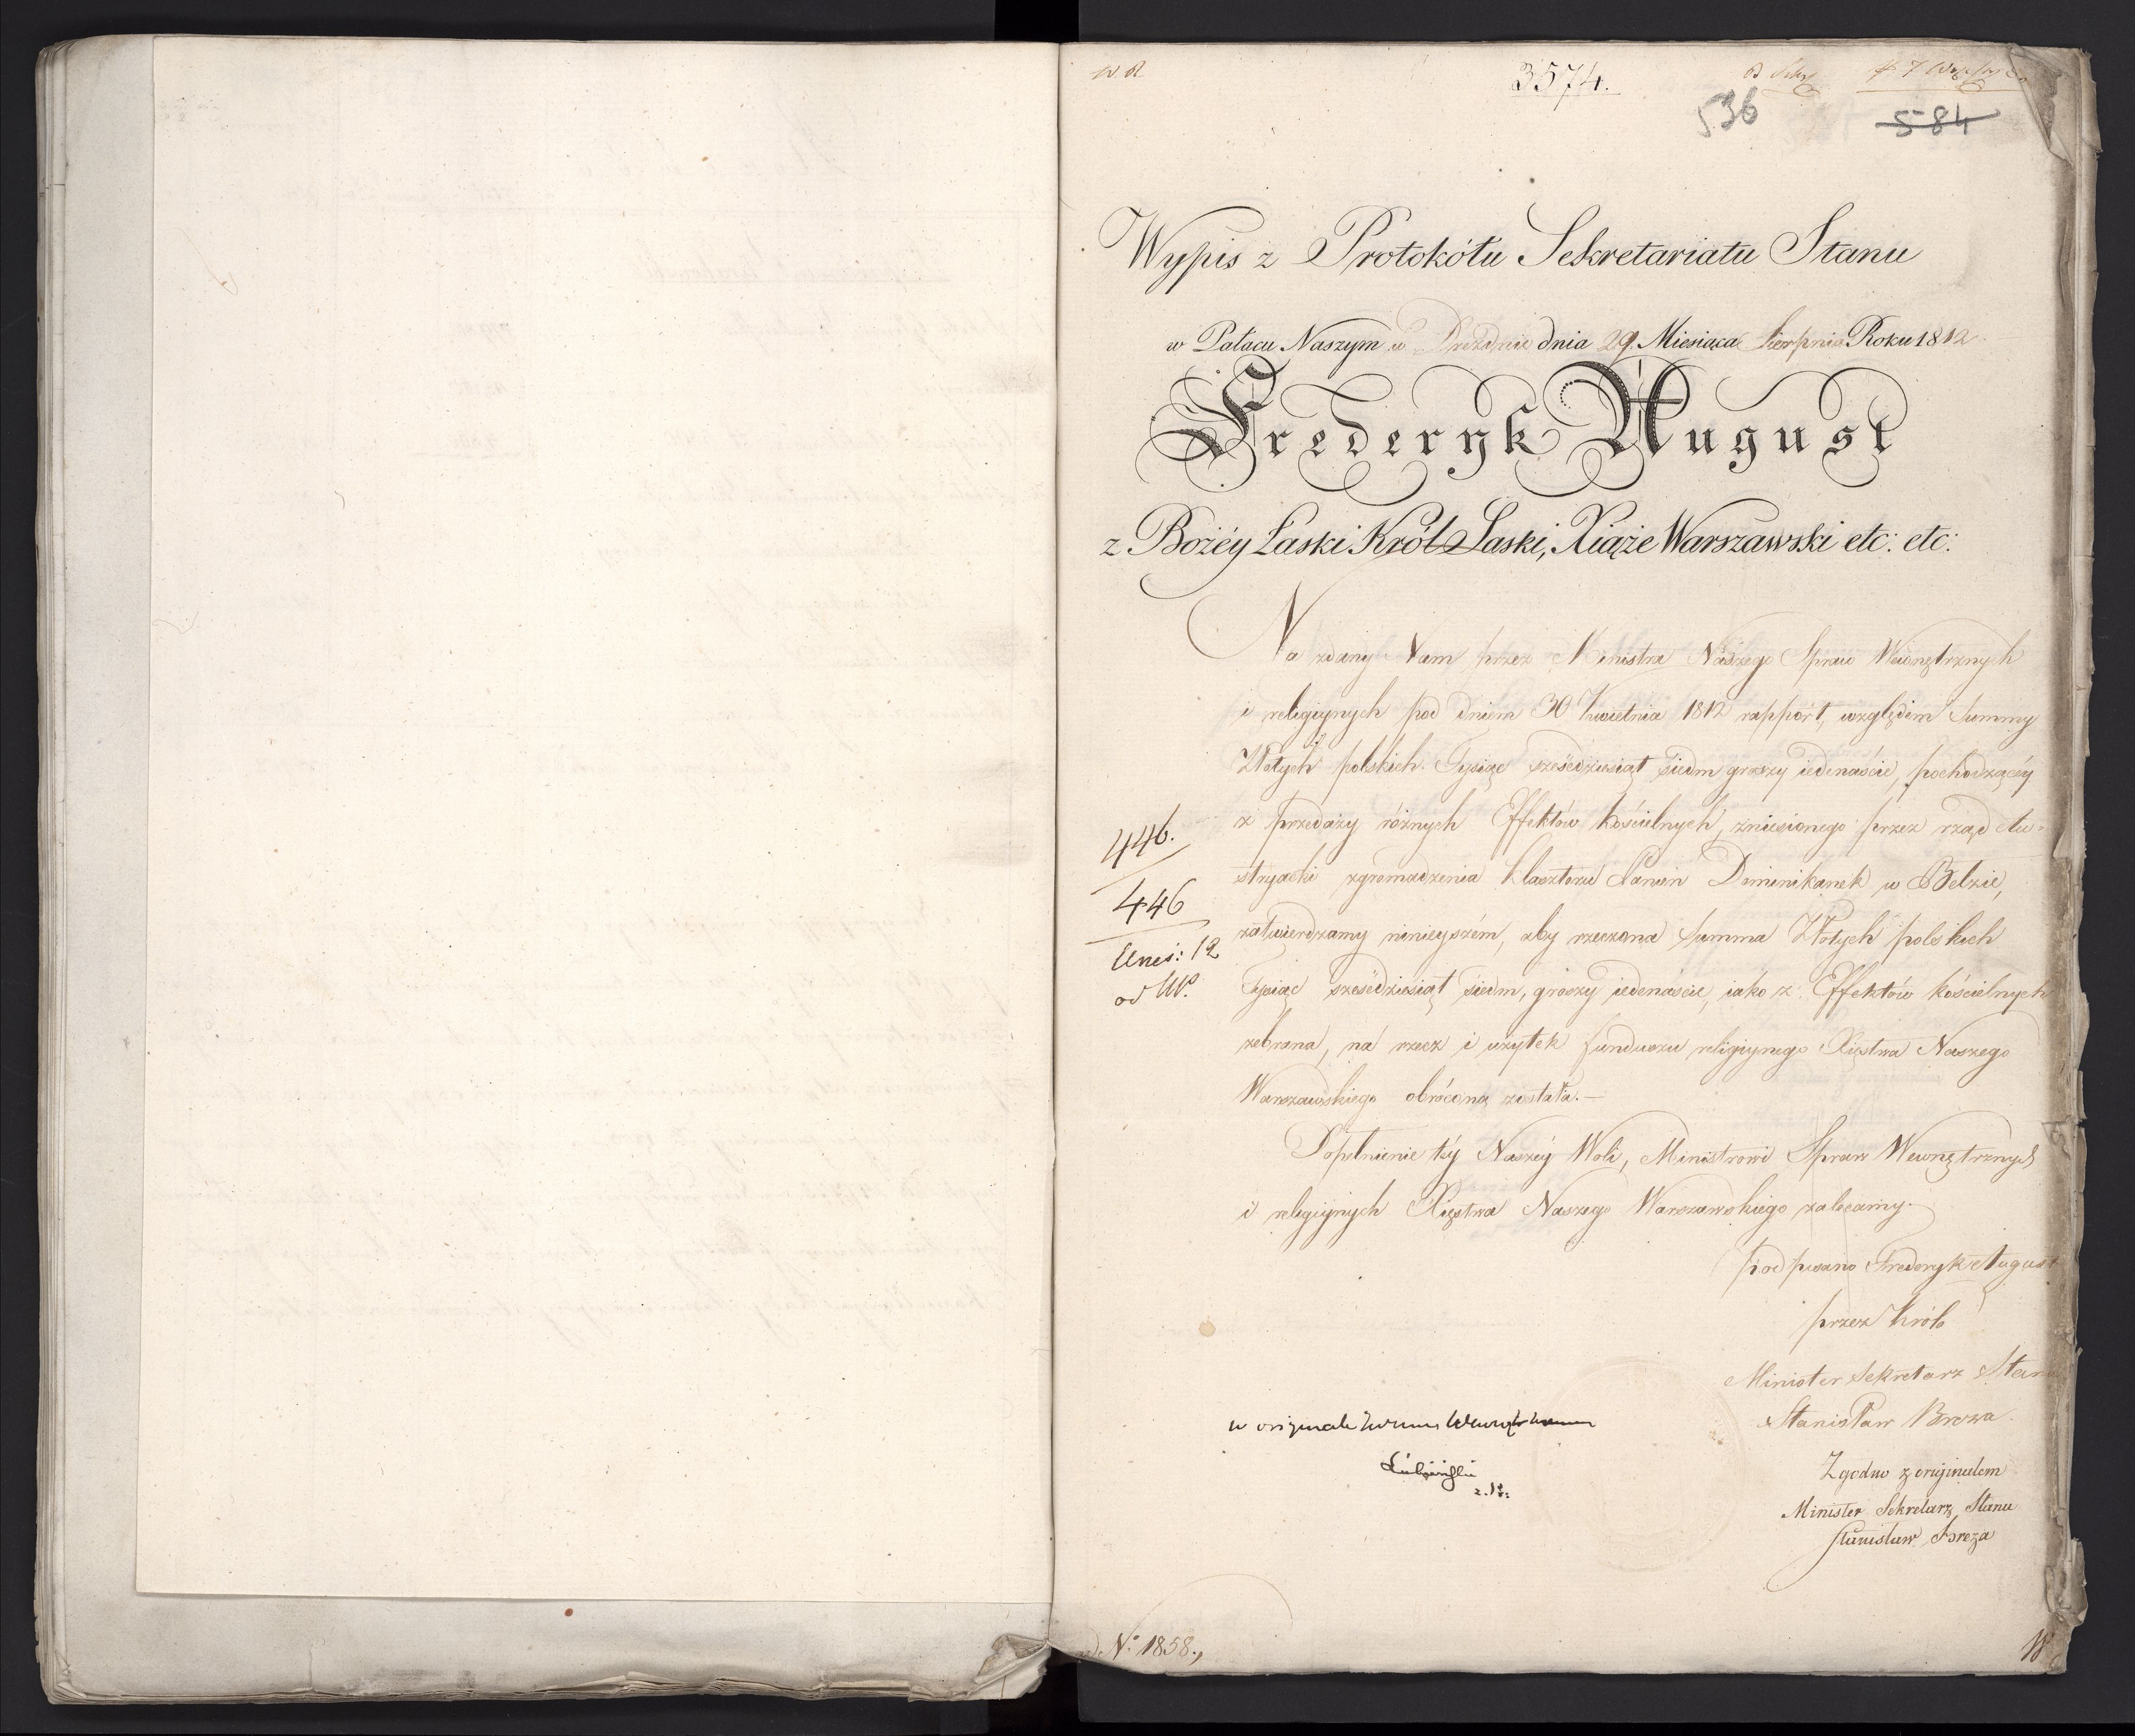 3574.
536
584
Wypis z Protokółu Sekretariatu Stanu
w Pałacu Naszym w Dreźnie dnia 29. Miesiąca Sierpnia Roku 1812.
Frederyk August
z Bożéy Łaski Król Saski, Xiąże Warszawski etc: etc:
Na zdany Nam przez Ministra Naszego Spraw Wewnętrznych
i religiynych pod dniem 30 Kwietnia 1812 rapport, względem Summy
Złotych polskich Tysiąc sześćdziesiąt siedm groszy iedenaście, pochodzącéy
z przedaży różnych Effektów kościelnych, zniesionego przez rząd Au-
stryacki zgromadzenia Klasztoru Panien Dominikanek w Bełzie,
zatwierdzamy ninieyszém, aby rzeczona Summa Złotych polskich
Tysiąc sześćdziesiąt siedm, groszy iedenaście, iako z Effektów kościelnych
zebrana, na rzecz i użytek funduszu religiynego Xięstwa Naszego
Warszawskiego obróconą została.—
446.
446
12
od
Dopełnienie téy Naszéy Woli, Ministrowi Spraw Wewnętrznych
i religiynych Xięstwa Naszego Warszawskiego zalecamy.
podpisano Frederyk August
przez Króla
Minister Sekretarz Stanu
Stanisław Breza.
Zgodno z originałem
Minister Sekretarz Stanu
Stanisław Breza
w originale
N.º 1858.,
W